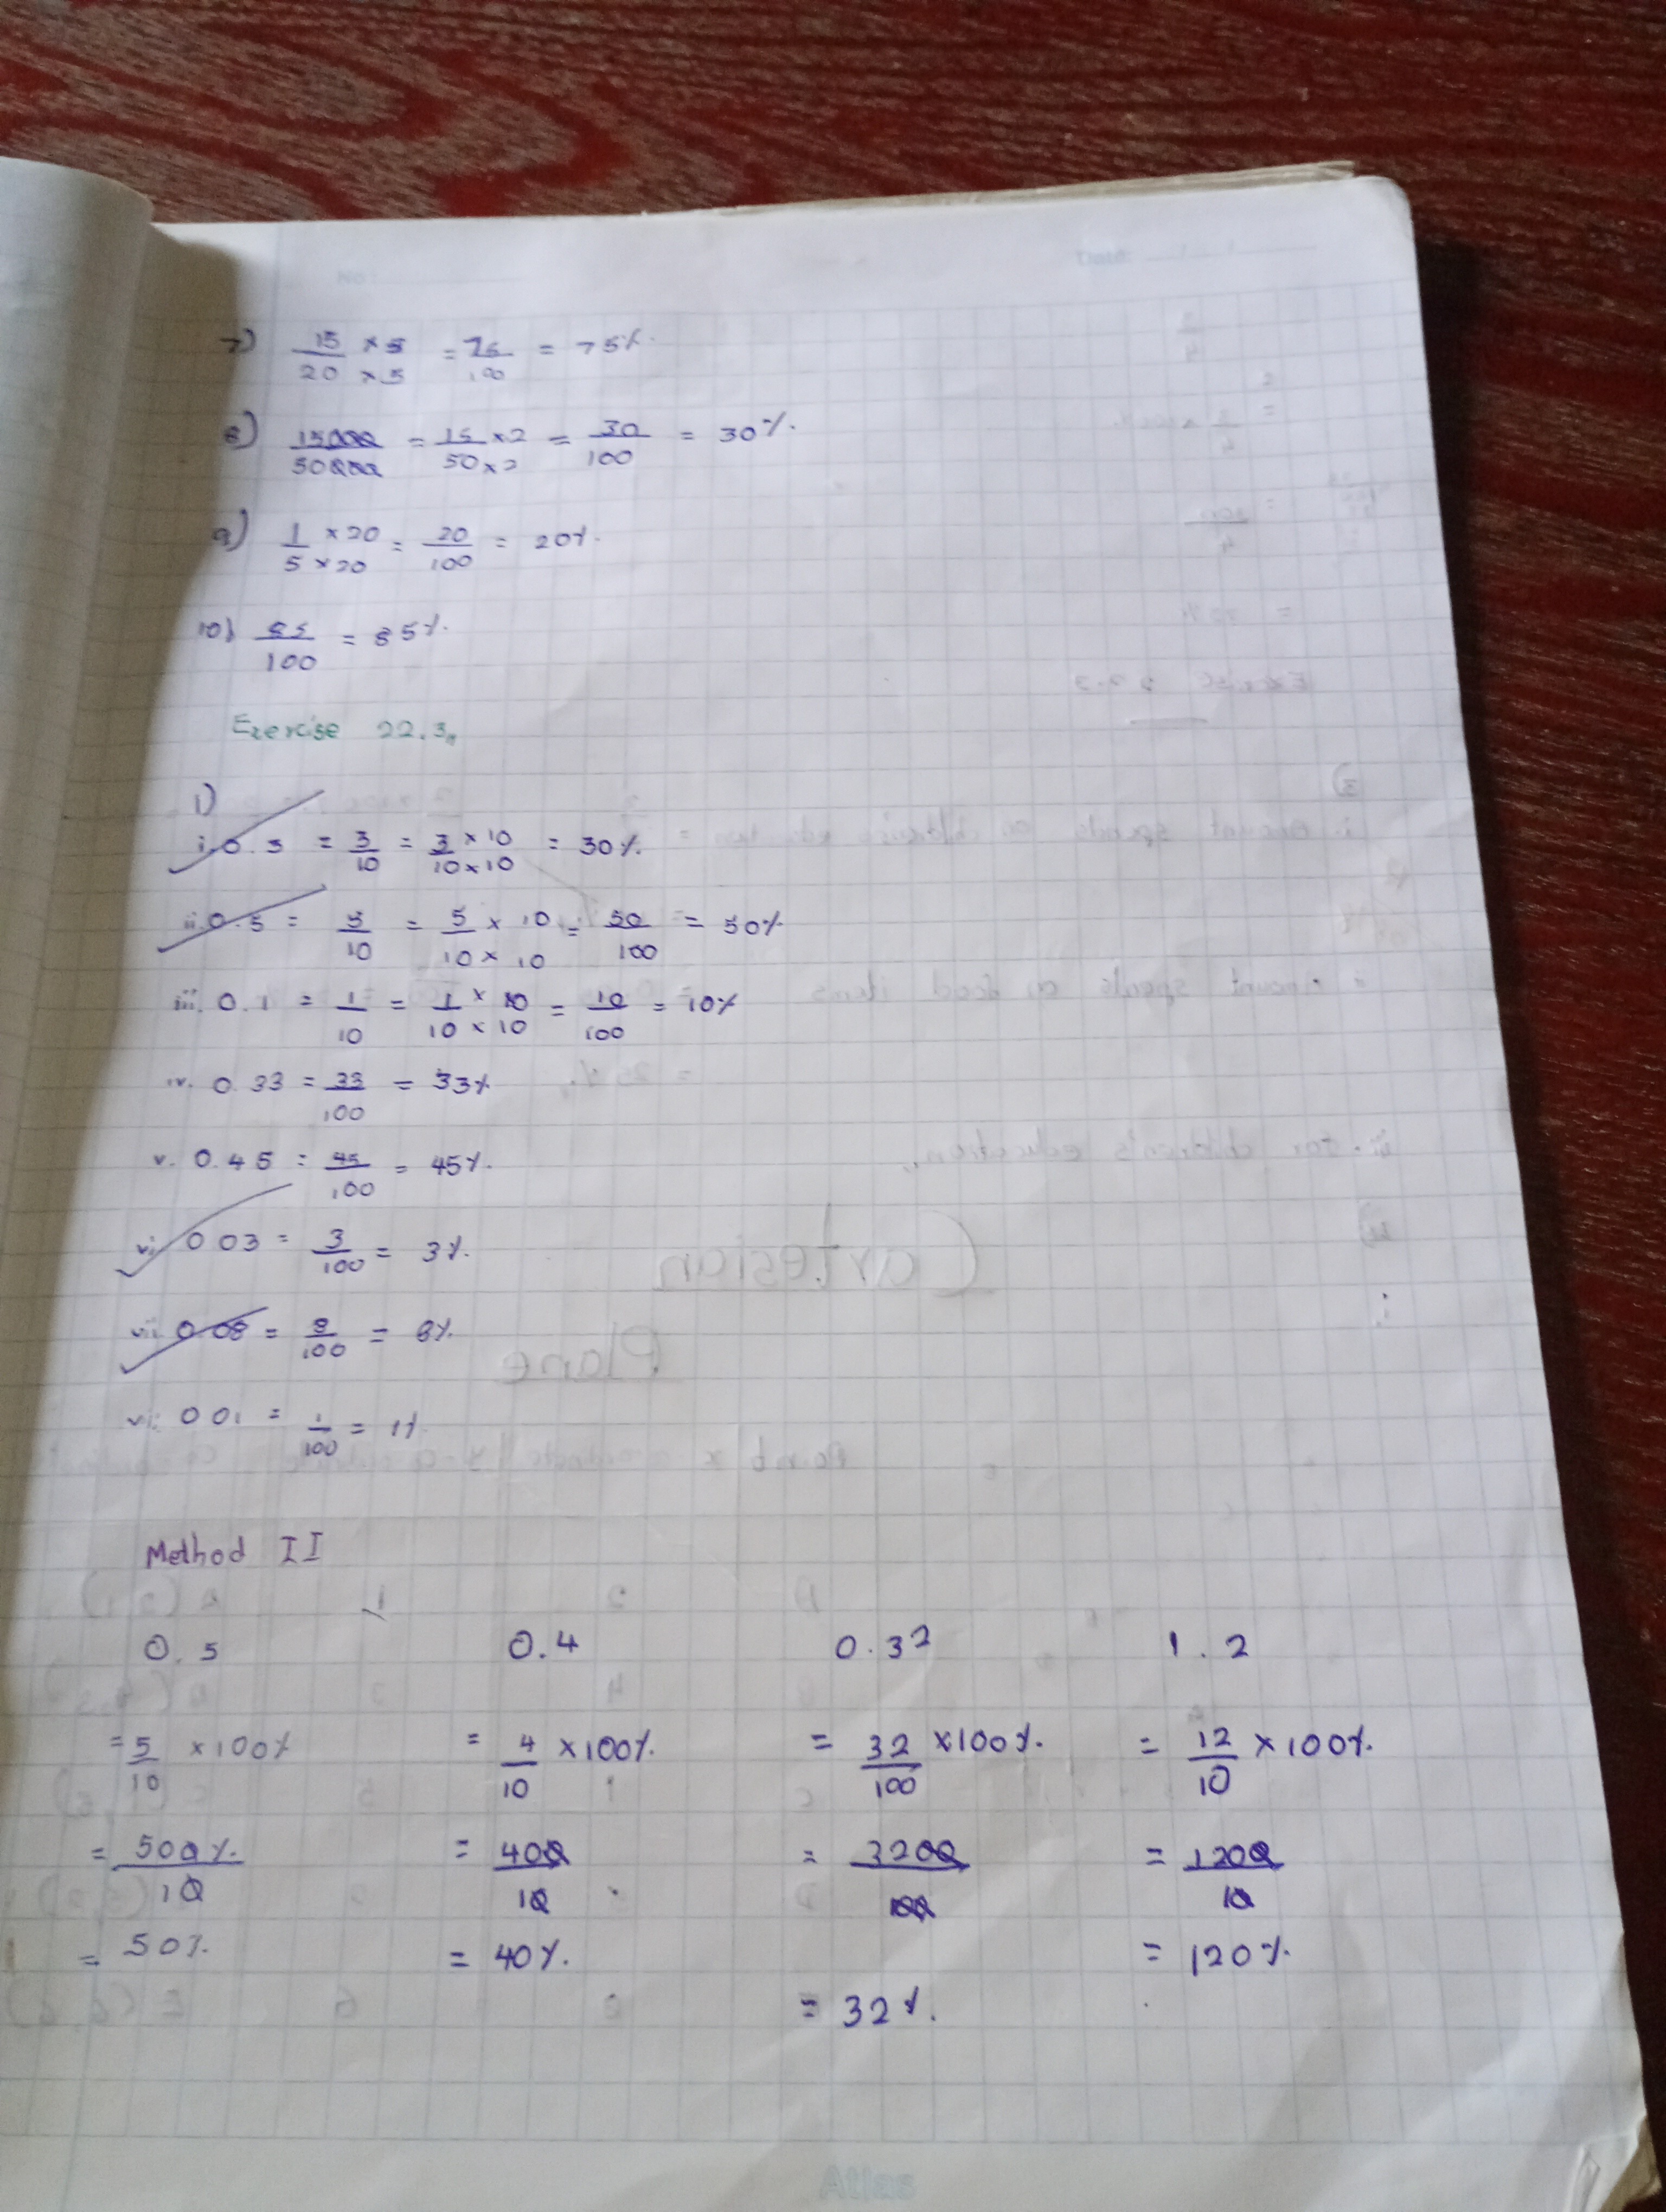 No:
Date:
7) 15/20 ×5/×5 = 75/100 = 75%.
8) 15000/50000 = 15×2/50×2 = 30/100 = 30%.
9) 1×20/5×20 = 20/100 = 20%.
10) 85/100 = 85%.
Exercise 22.3
1)
i. 0.3 = 3/10 = 3×10/10×10 = 30%.
ii. 0.5 = 5/10 = 5×10/10×10 = 50/100 = 50%
iii. 0.1 = 1/10 = 1×10/10×10 = 10/100 = 10%
iv. 0.33 = 33/100 = 33%
v. 0.45 = 45/100 = 45%.
vi. 0.03 = 3/100 = 3%.
vii. 0.08 = 8/100 = 8%.
0.01 = 1/100 = 1%
Method II
0.5 0.4 0.32 1.2
= 5/10 ×100% = 4/10 ×100%. = 32/100 ×100%. = 12/10 ×100%.
= 500%./10 = 400/10 = 3200/100 = 1200/10
= 50%. = 40%. = 120%.
= 32%.
Atlas